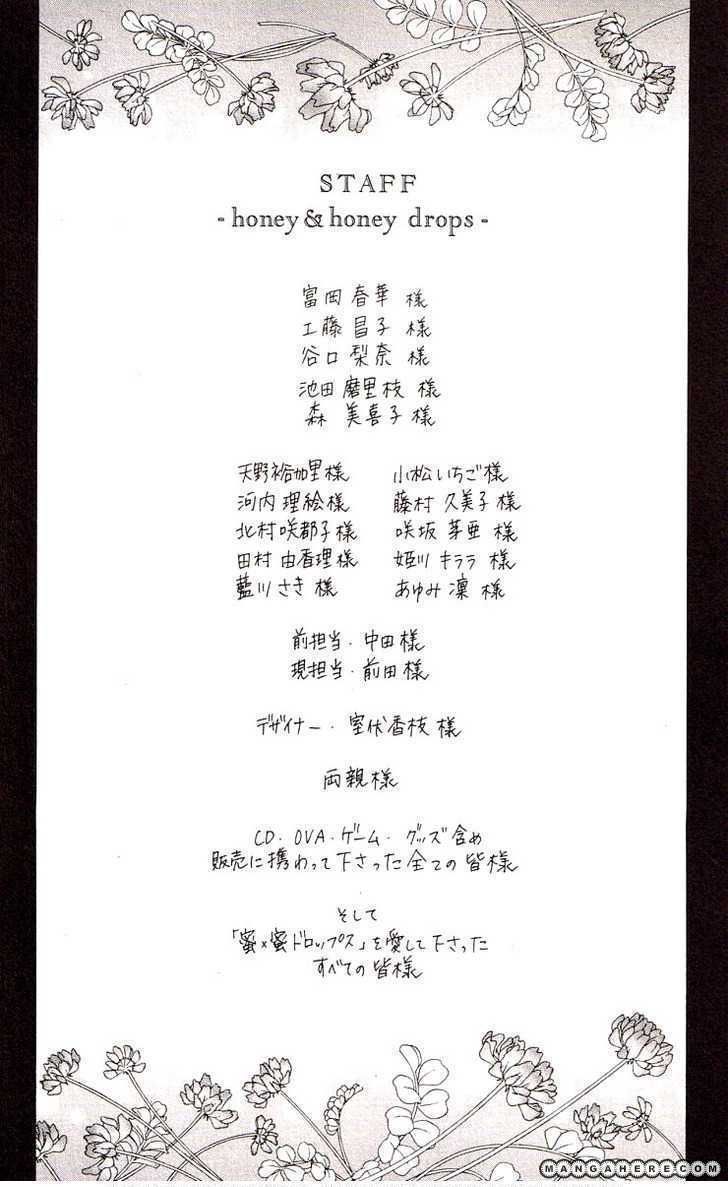 STAFF
- honey & honey drops -
富岡 春華 様
工藤 昌子 様
谷口 梨奈 様
池田 磨里枝 様
森 美喜子 様
天野裕加里様 小松いちご様
河内 理絵様 藤村 久美子様
北村咲都子様 咲坂 芽亜 様
田村 由香理様 姫川 キララ 様
藍川 さき 様 あゆみ 凛 様
前担当・中田様
現担当・前田様
デザイナー・室伏香枝様
両親様
CD・OVA・ゲーム・グッズ含め
販売に携わって下さった全ての皆様
そして
「蜜×蜜ドロップス」を愛して下さった
すべての皆様
MANGAHERE.COM